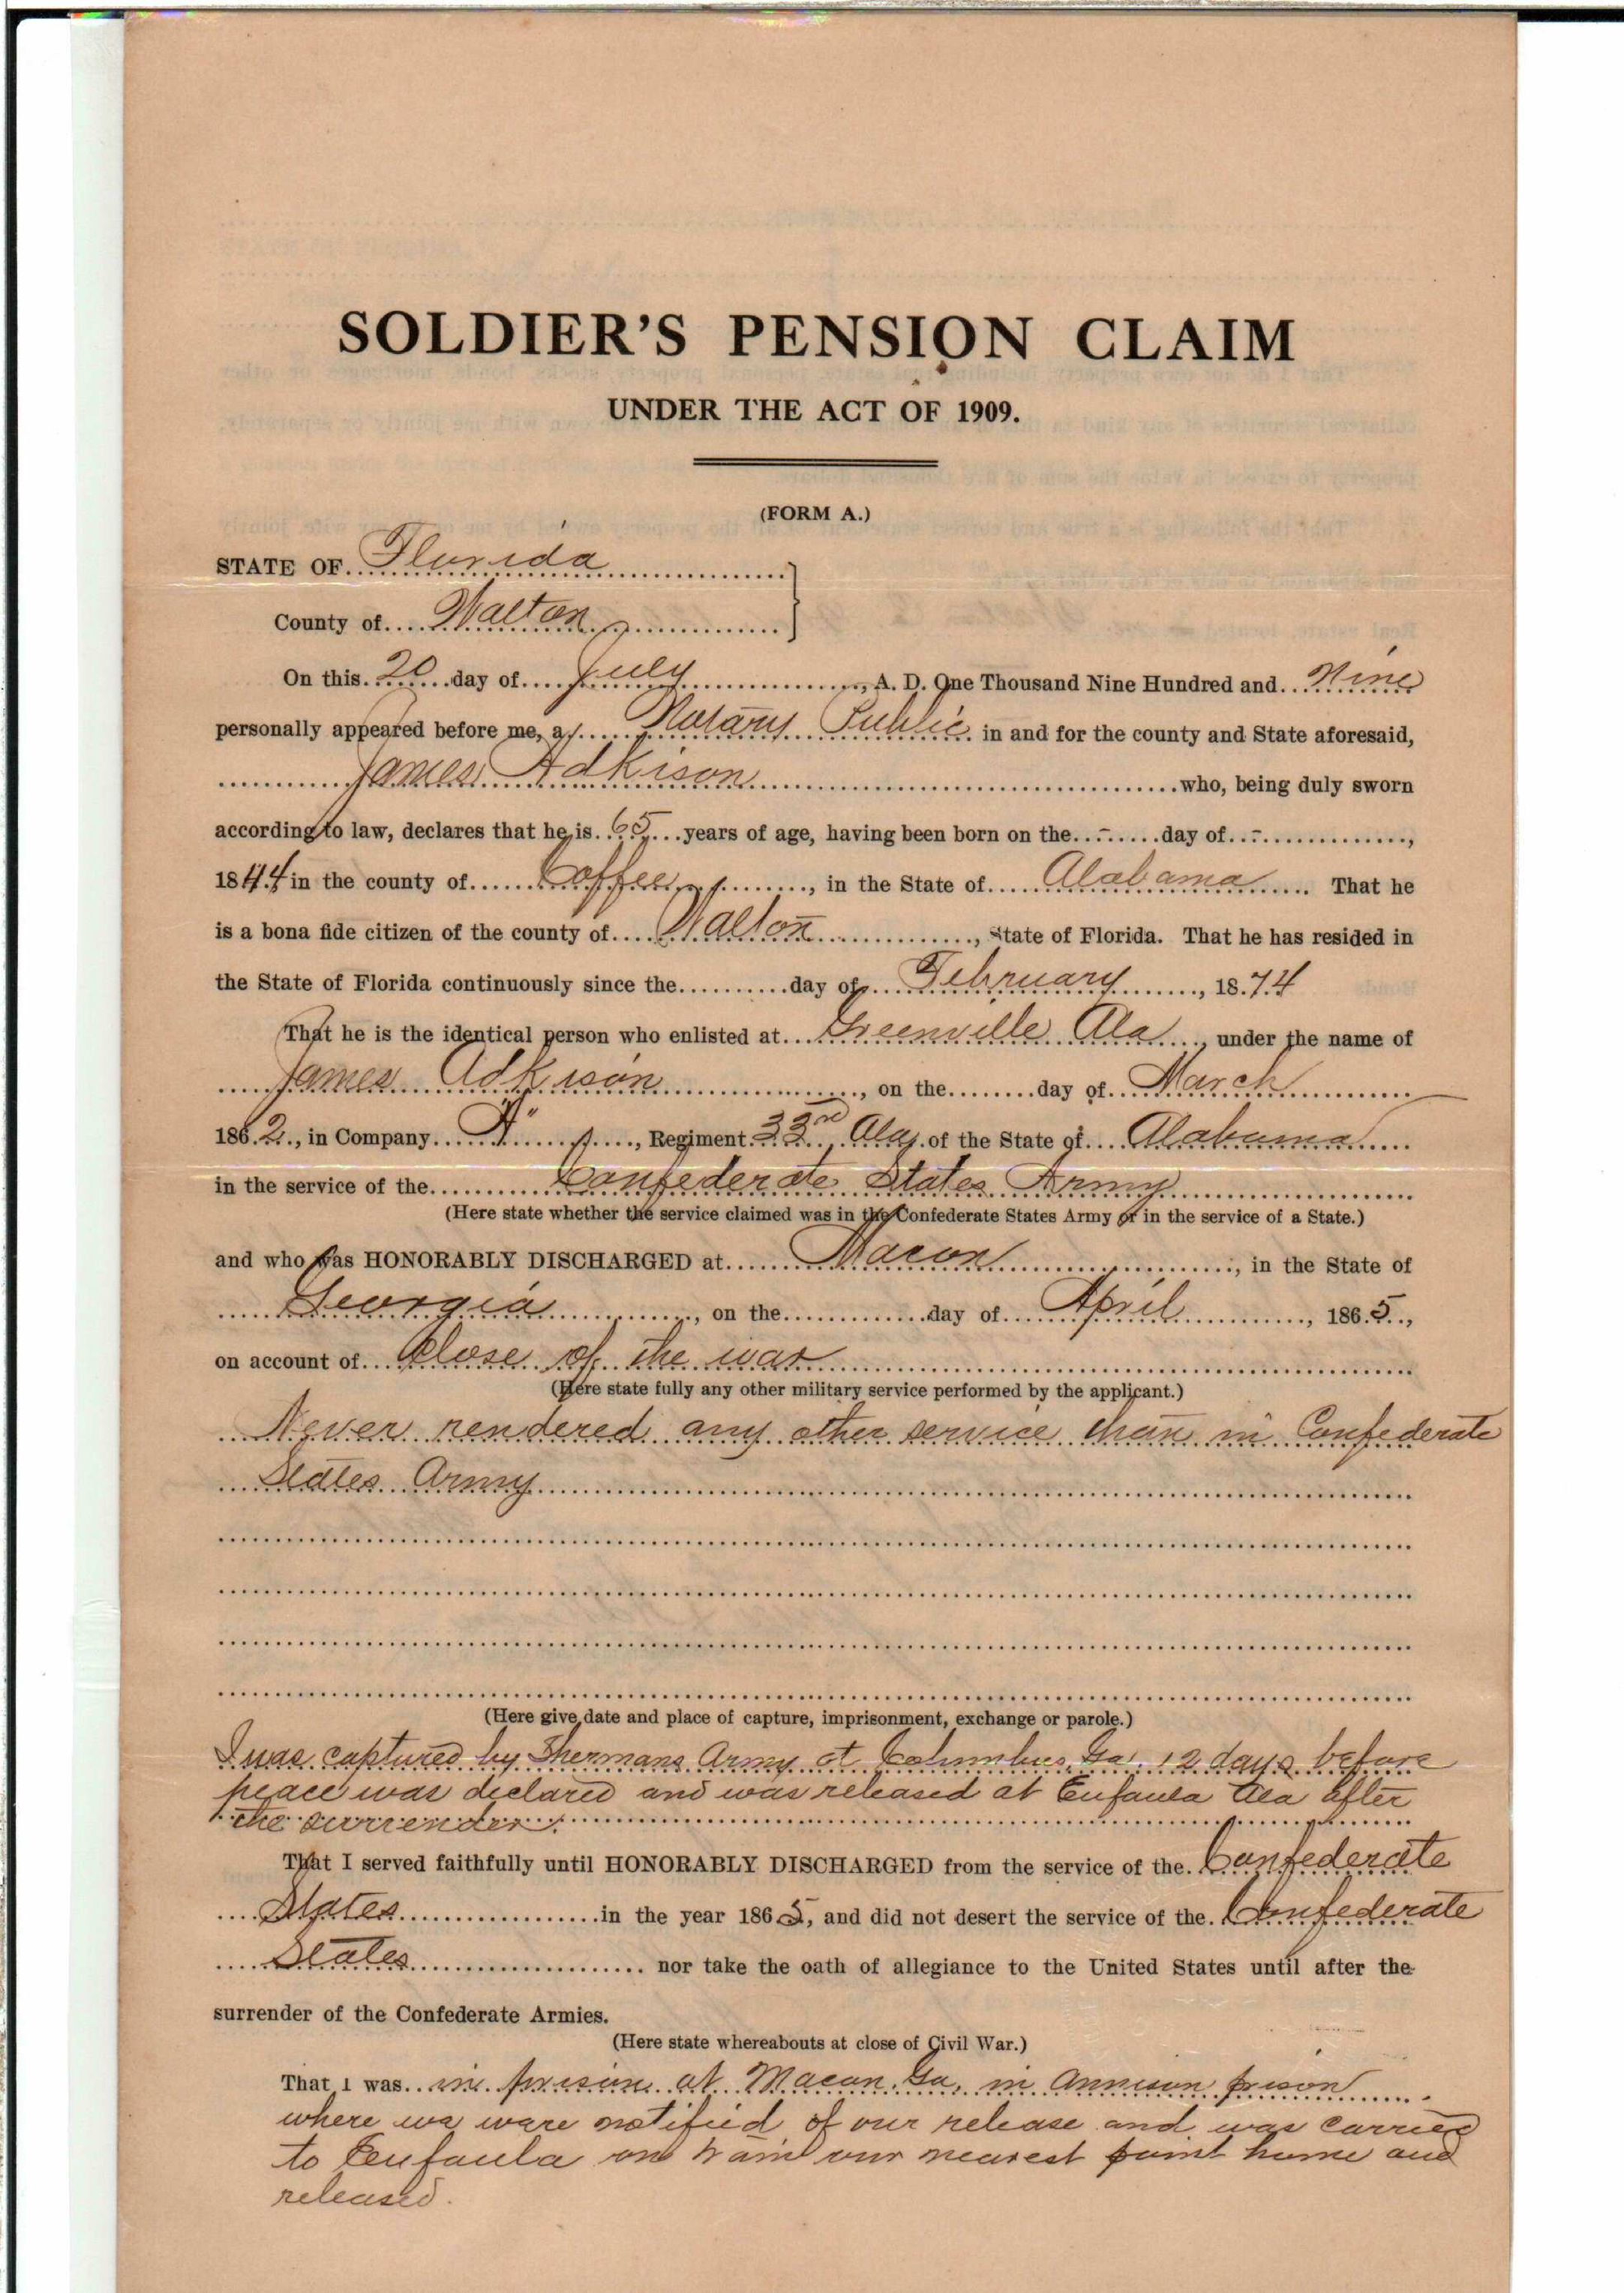 SOLDIER'S PENSION CLAIM
UNDER THE ACT OF 1909.
(FORM A.)
STATE OF Florida
County of Walton
On this 20 day of July, A. D. One Thousand Nine Hundred and Nine
personally appeared before me, a Notary Public in and for the county and State aforesaid,
James Adkison who, being duly sworn
according to law, declares that he is 65 years of age, having been born on the - day of -,
1844 in the county of Coffee, in the State of Alabama. That he
is a bona fide citizen of the county of Walton, State of Florida. That he has resided in
the State of Florida continuously since the day of February, 1874
That he is the identical person who enlisted at Greenville Ala, under the name of
James Adkison, on the day of March
1862, in Company, Regiment 33rd Ala, of the State of Alabama
in the service of the Confederate States Army
(Here state whether the service claimed was in the Confederate States Army or in the service of a State.)
and who was HONORABLY DISCHARGED at Macon, in the State of
Georgia, on the day of April, 1865,
on account of Close of the war
(Here state fully any other military service performed by the applicant.)
Never rendered any other service than in Confederate
States Army
(Here give date and place of capture, imprisonment, exchange or parole.)
I was captured by Shermans Army at Columbus, Ga. 12 days before
peace was declared and was released at Eufaula Ala after
the surrender.
That I served faithfully until HONORABLY DISCHARGED from the service of the Confederate
States in the year 1865, and did not desert the service of the Confederate
States nor take the oath of allegiance to the United States until after the
surrender of the Confederate Armies.
(Here state whereabouts at close of Civil War.)
That I was in prison at Macon, Ga, in prison
where we ware notified of our release and was carried
to Eufaula our nearest point home and
released.